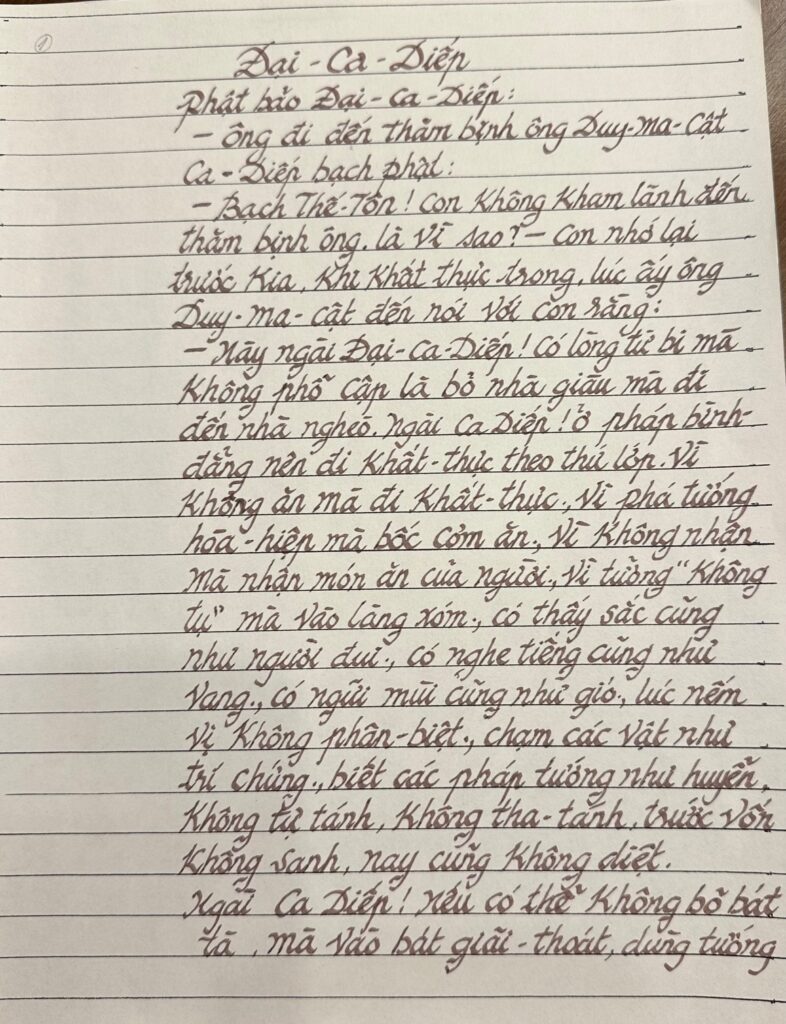 1
Đại-Ca-Diếp
Phật bảo Đại-Ca-Diếp:
- Ông đi đến thăm bịnh ông Duy-Ma-Cật
Ca-Diếp bạch phật:
- Bạch Thế-Tôn! Con Không Kham lãnh đến
thăm bịnh ông. là vì sao? - Con nhớ lại
trước Kia, Khi Khất thực trong, lúc ấy ông
Duy-Ma-Cật đến nói với con rằng:
- Này ngài Đại-Ca-Diếp! Có lòng từ bi mà
Không phổ cập là bỏ nhà giàu mà đi
đến nhà nghèo. Ngài Ca Diếp! ở pháp bình-
đẳng nên đi Khất-thực theo thứ lớp. Vì
Không ăn mà đi Khất-thực., vì phá tướng
hòa-hiệp mà bốc cơm ăn., vì Không nhận
Mà nhận món ăn của người., vì tưởng "Không
tụ" mà vào làng xóm., có thấy sắc cũng
như người đui., có nghe tiếng cũng như
vang., có ngửi mùi cũng như gió., lúc nếm
vị Không phân-biệt., chạm các vật như
trí chứng., biết các pháp tướng như huyễn,
Không tự tánh, Không tha-tánh, trước vốn
Không sanh, nay cũng Không diệt.
Ngài Ca Diếp! Nếu có thể Không bỏ bát
tà, mà vào bát giải-thoát, dùng tướng